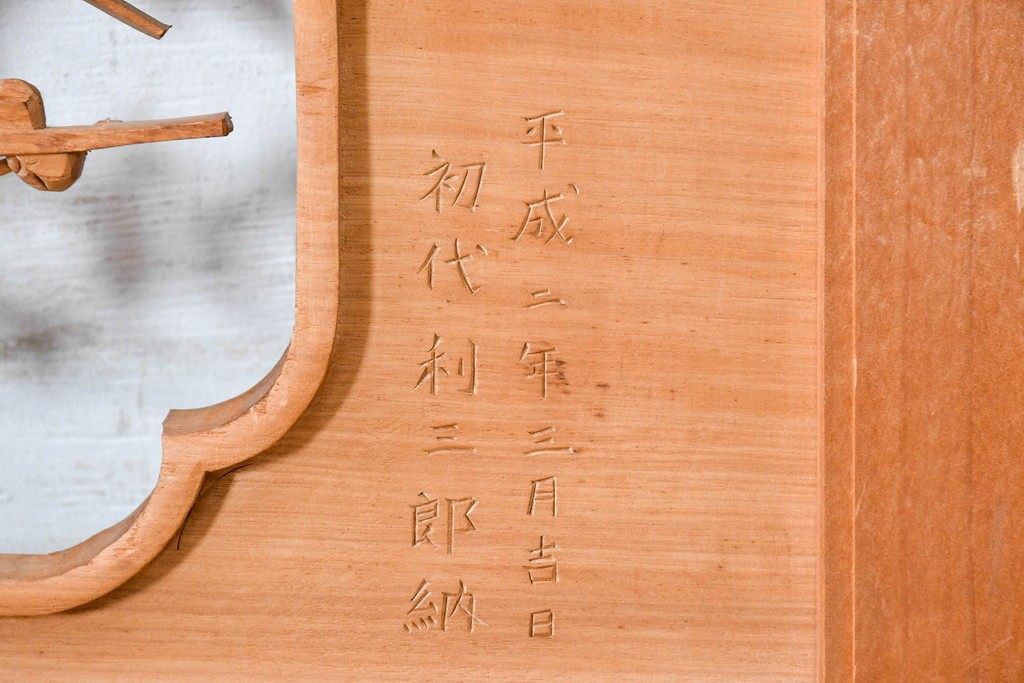 平成二年三月吉日
初代利三郎納